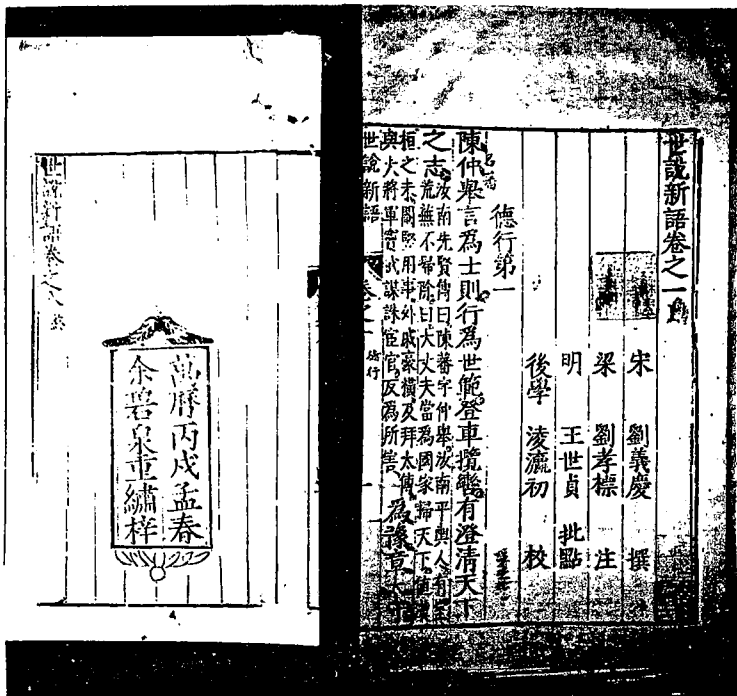 世說新語卷之一
宋 劉義慶 撰
梁 劉孝標 注
明 王世貞 批點
後學 淩瀛初 校
德行第一
陳仲舉言為士則行為世範登車攬轡有澄清天下
之志汝南先賢傳曰陳蕃字仲舉汝南平輿人有室
荒蕪不掃除曰大丈夫當為國家掃天下值漢
桓之末閹豎用事外戚豪橫及拜太傅
與大將軍竇武謀誅宦官反為所害 為豫章太
世說新語 卷之一 德行
萬曆丙戌孟春
余碧泉重繡梓
世說新語卷之八終